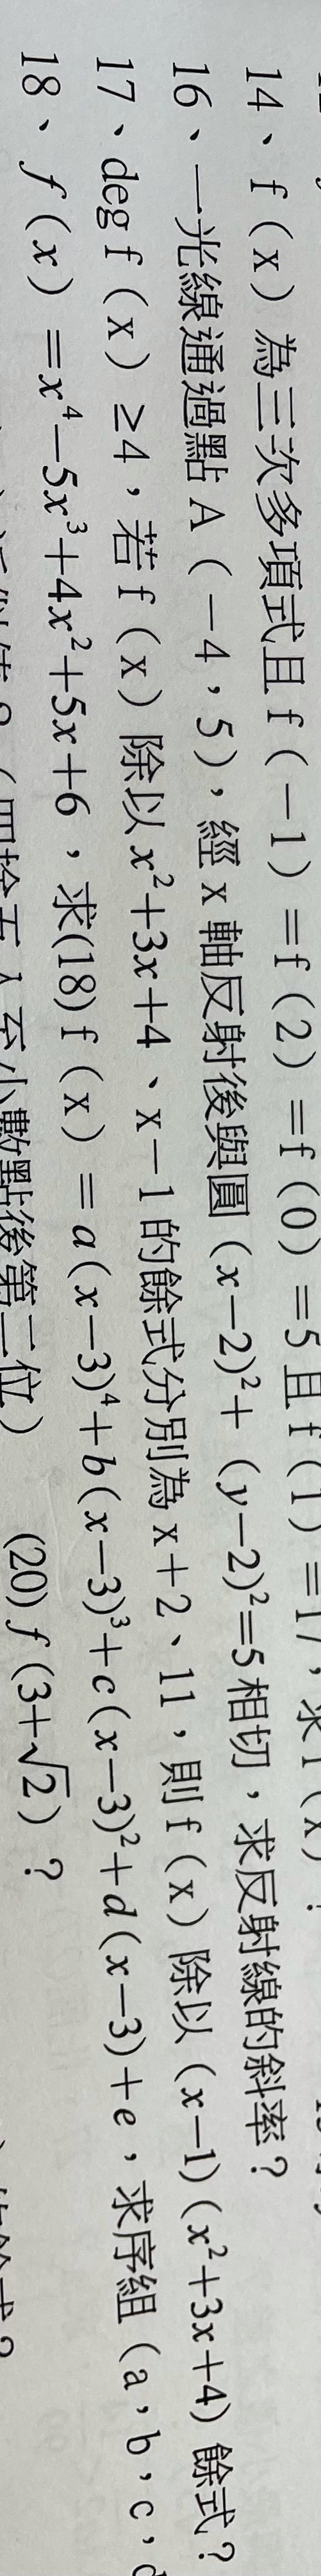 14、f（x）為三次多項式且 f（－1）＝f（2）＝f（0）＝5 且 f（1）＝17，求 f（x）？
16、一光線通過點 A（－4，5），經 x 軸反射後與圓 (x－2)²＋（y－2)²＝5 相切，求反射線的斜率？
17、deg f（x）≥4，若 f（x）除以 x²＋3x＋4、x－1 的餘式分別為 x＋2、11，則 f（x）除以（x－1)（x²＋3x＋4）餘式？
18、f（x）＝x⁴－5x³＋4x²＋5x＋6，求(18) f（x）＝a(x－3)⁴＋b(x－3)³＋c(x－3)²＋d(x－3)＋e，求序組（a，b，c，d
（四捨五入至小數點後第二位） (20) f（3＋√2）？
餘式？